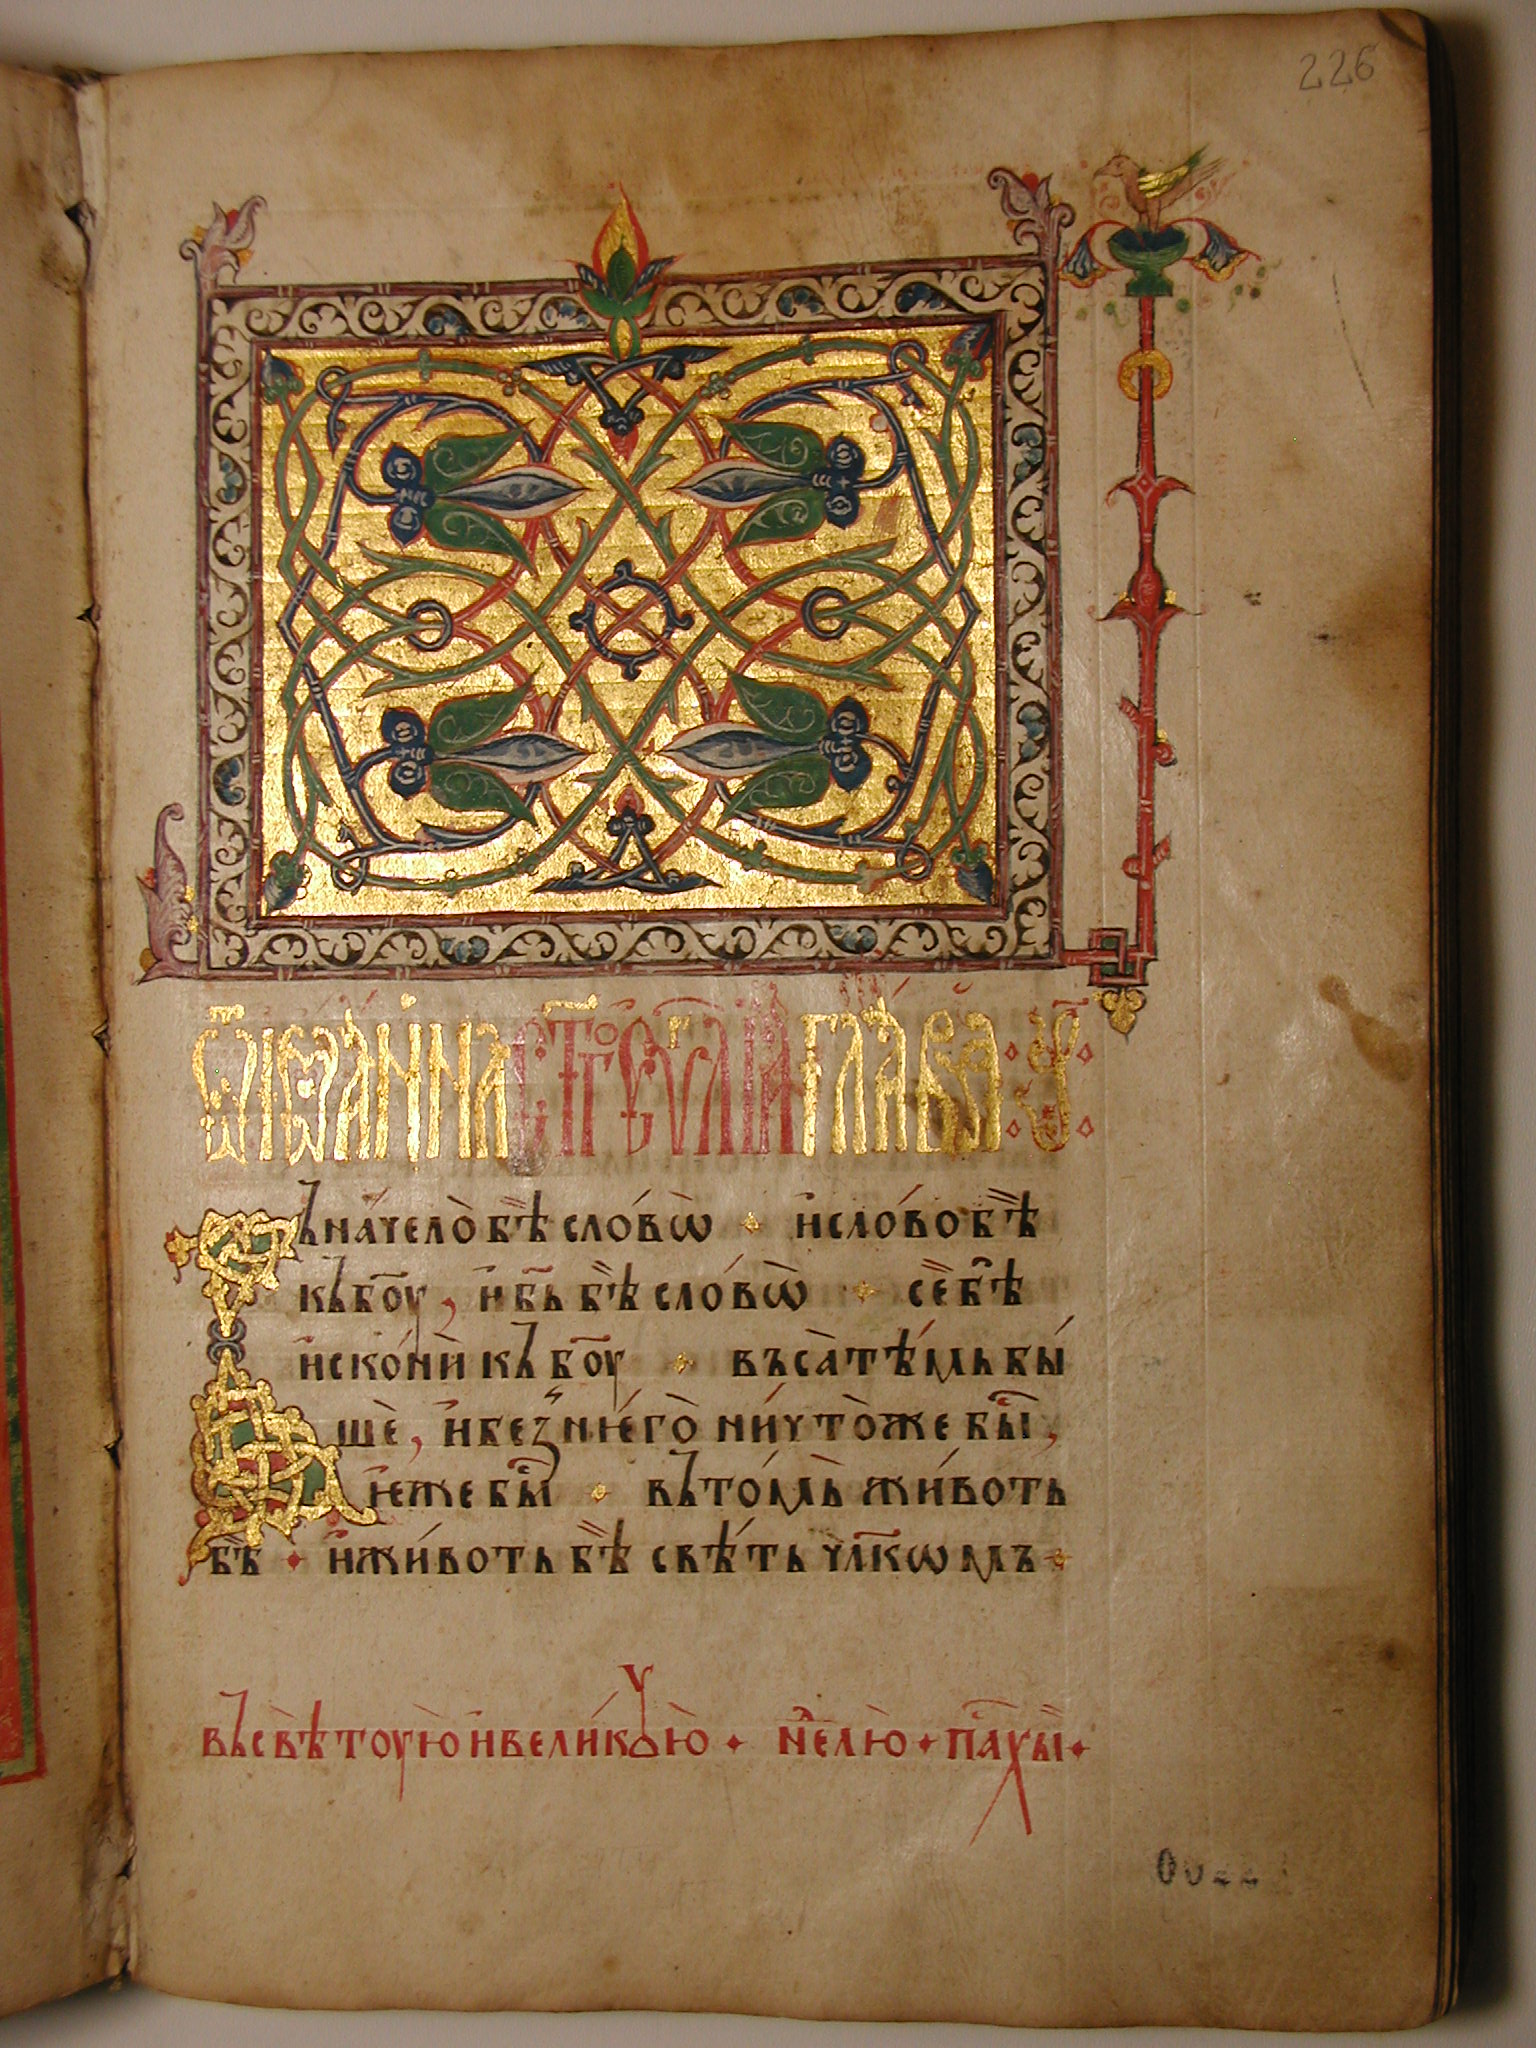 226
Ѿ ІѠАННА СТ҃ОГО ЕѴГ҃ЛІА ГЛАВА · А҃ ·
Въ начело бѣ слово · и слово бѣ
къ бо҃у, и б҃ь бѣ словѡ · се бѣ
искони къ бо҃у · въса тѣмь бы
ше, и без ніего ничтоже бы҃,
ѥже бы҃ · въ томь животь
бѣ · и животь бѣ свѣть чл҃кѡмъ ·
въ светоую и великꙋю · не҃лю · па҃схы ·